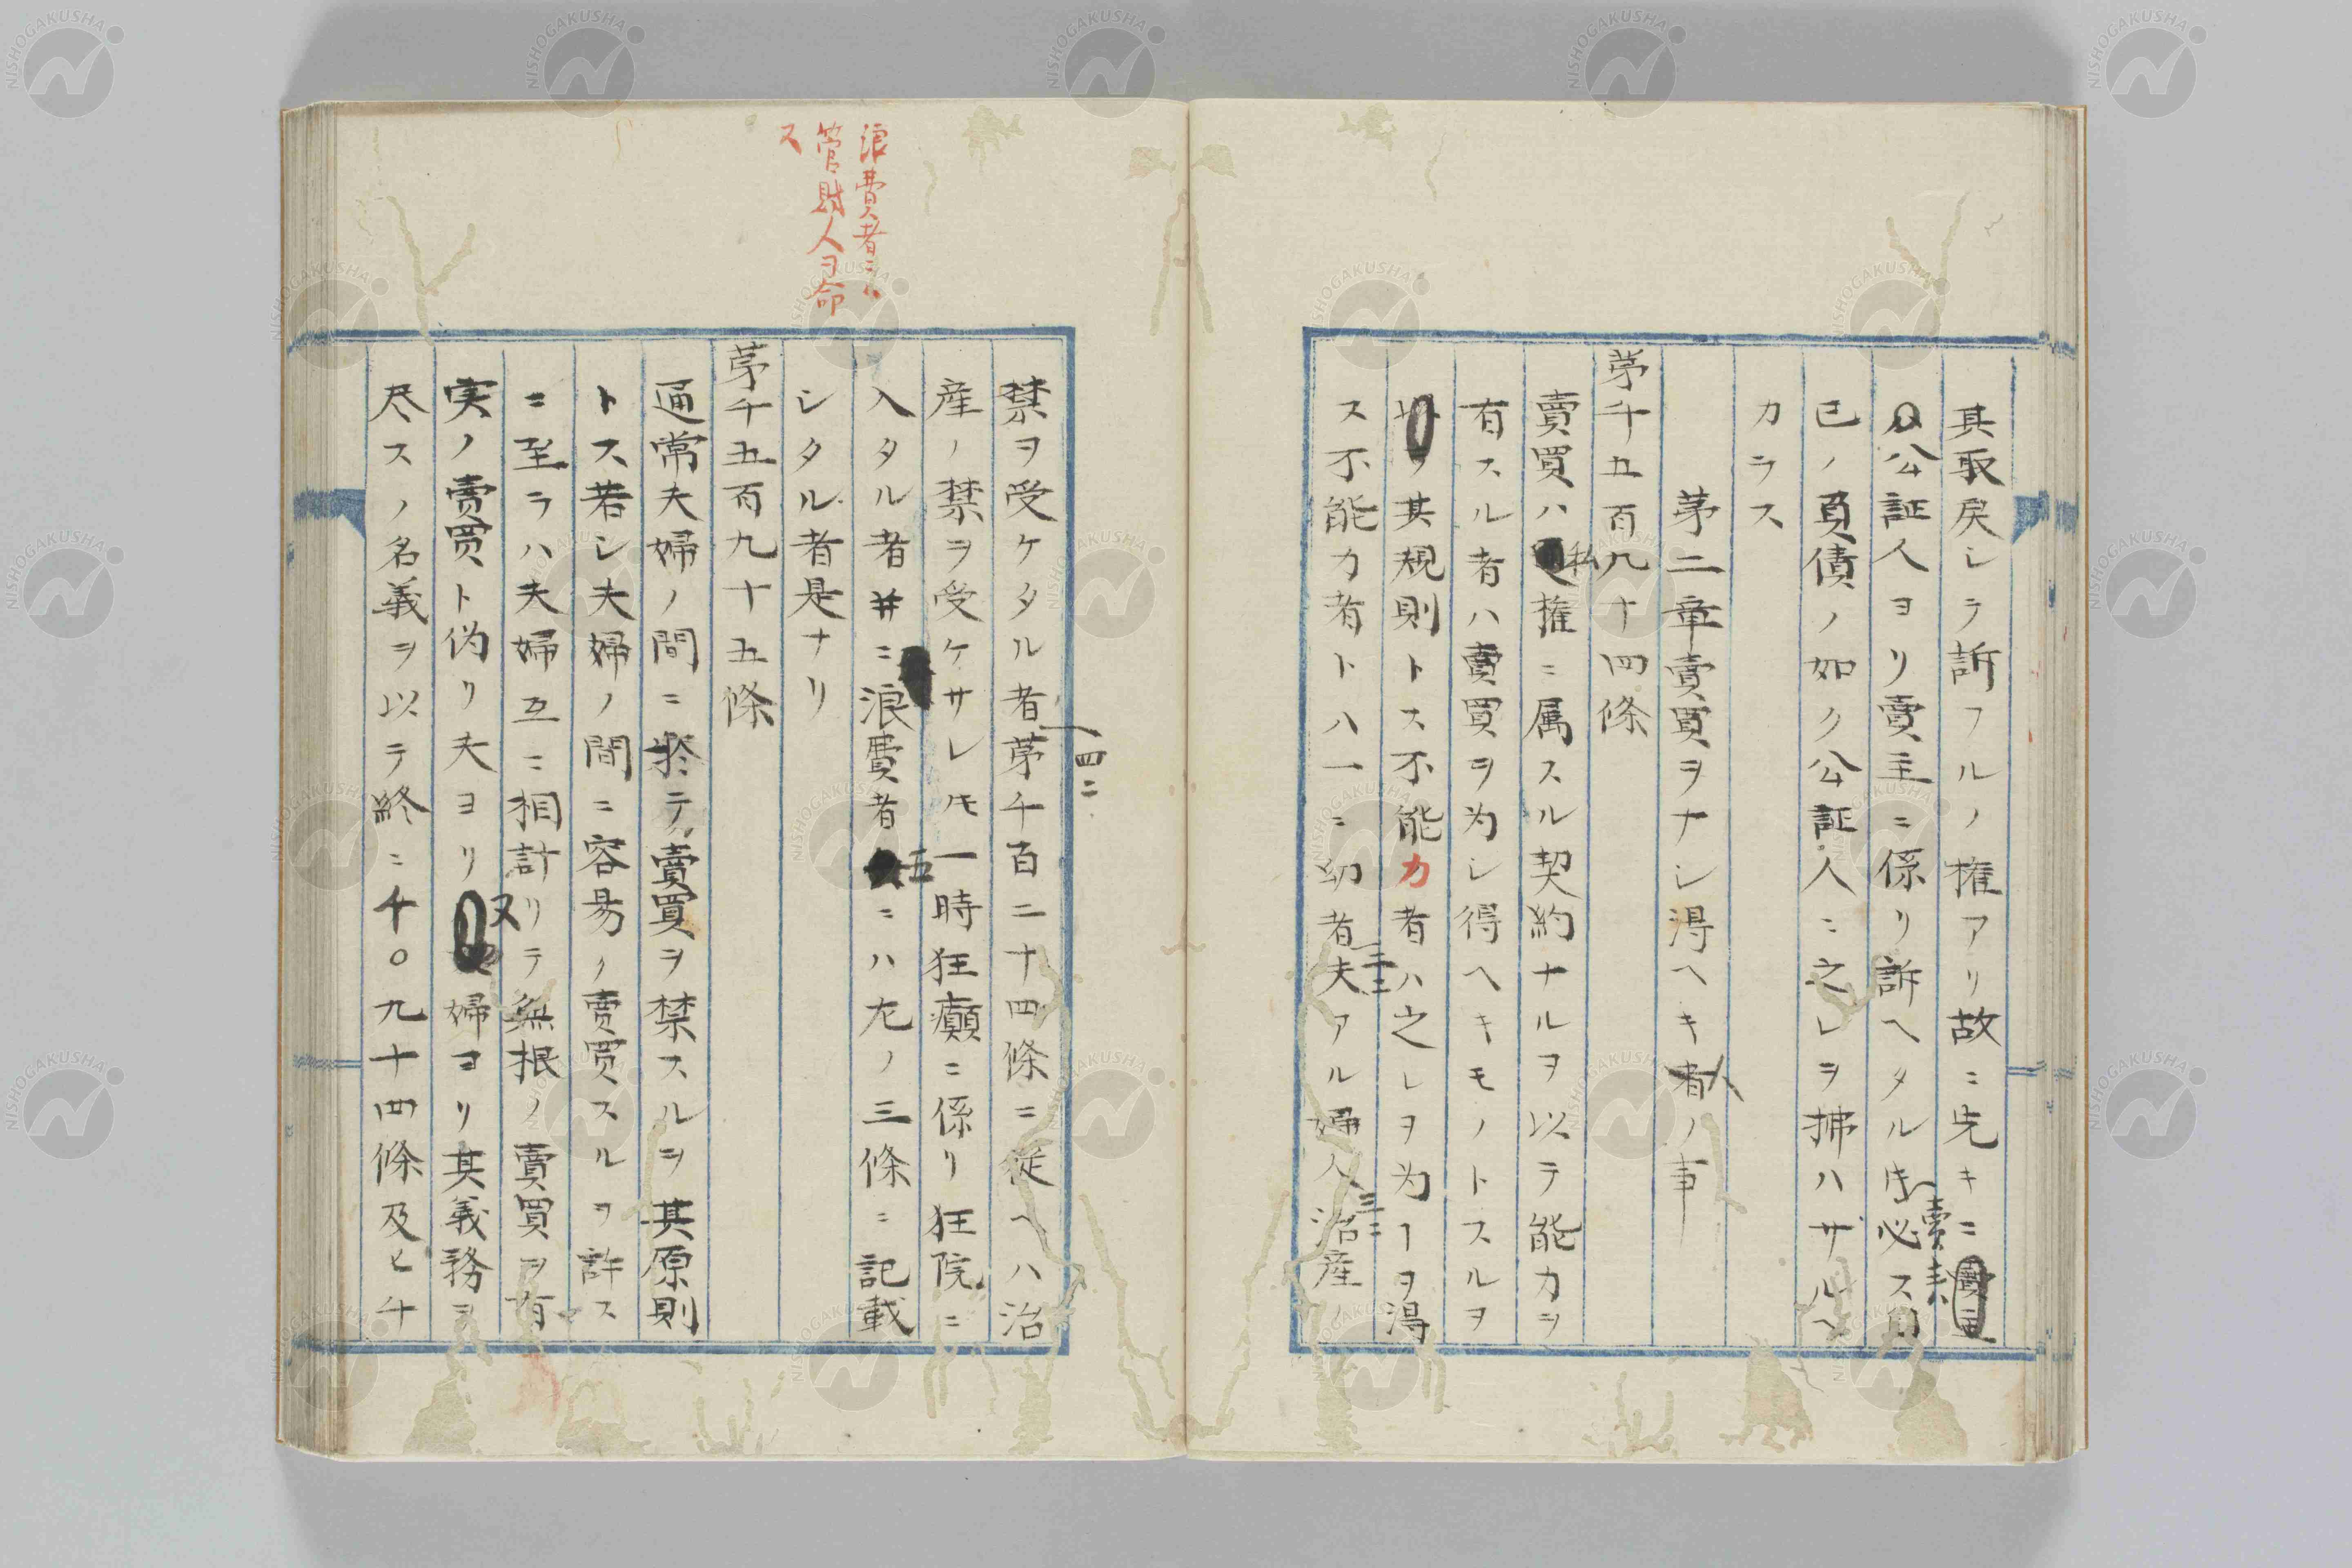 其取戻シヲ訴フルノ権アリ故ニ先キニ
公証人ヨリ賣主ニ係リ訴ヘタル時必ス自
賣主
已ノ負債ノ如ク公証人ニ之レヲ拂ハサルヘ
カラス
第二章賣買ヲナシ得ヘキ人ノ事
第千五百九十四條
賣買ハ私権ニ属スル契約ナルヲ以テ能力ヲ
有スル者ハ賣買ヲ為シ得ヘキモノトスルヲ
其規則トス不能力者ハ之レヲ為ヿヲ得
ス不能力者トハ一ニ幼者二ニ夫アル婦人三ニ治産ノ
禁ヲ受ケタル者第千百二十四條ニ従ヘハ治
四ニ
産ノ禁ヲ受ケサレ𪜈一時狂癲ニ係リ狂院ニ
入タル者并ニ浪費者五ニハ左ノ三條ニ記載
シタル者是ナリ
第千五百九十五條
通常夫婦ノ間ニ於テ賣買ヲ禁スルヲ其原則
トス若シ夫婦ノ間ニ容易ク賣買スルヲ許ス
ニ至ラハ夫婦互ニ相計リテ無根ノ賣買ヲ有
実ノ賣買ト偽リ夫ヨリ又婦ヨリ其義務ヲ
尽スノ名義ヲ以テ終ニ千〇九十四條及ヒ千
浪費者ニハ
管財人ヲ命
ス
NISHOGAKUSHA